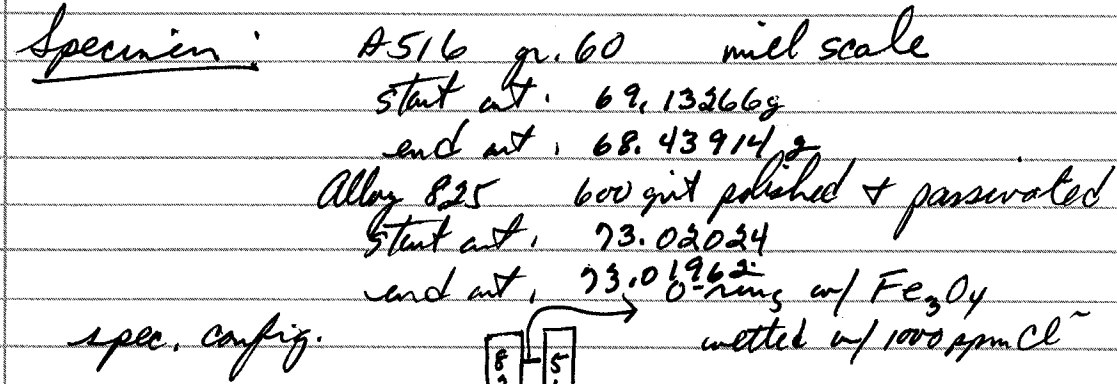 Specimen: A516 gr. 60 mill scale
start wt. 69.13266g
end wt. 68.43914g
Alloy 825 600 grit polished + passivated
start wt. 73.02024
end wt. 73.01962
O-ring w/ Fe3O4
spec. config. wetted w/ 1000 ppm Cl-
8 5